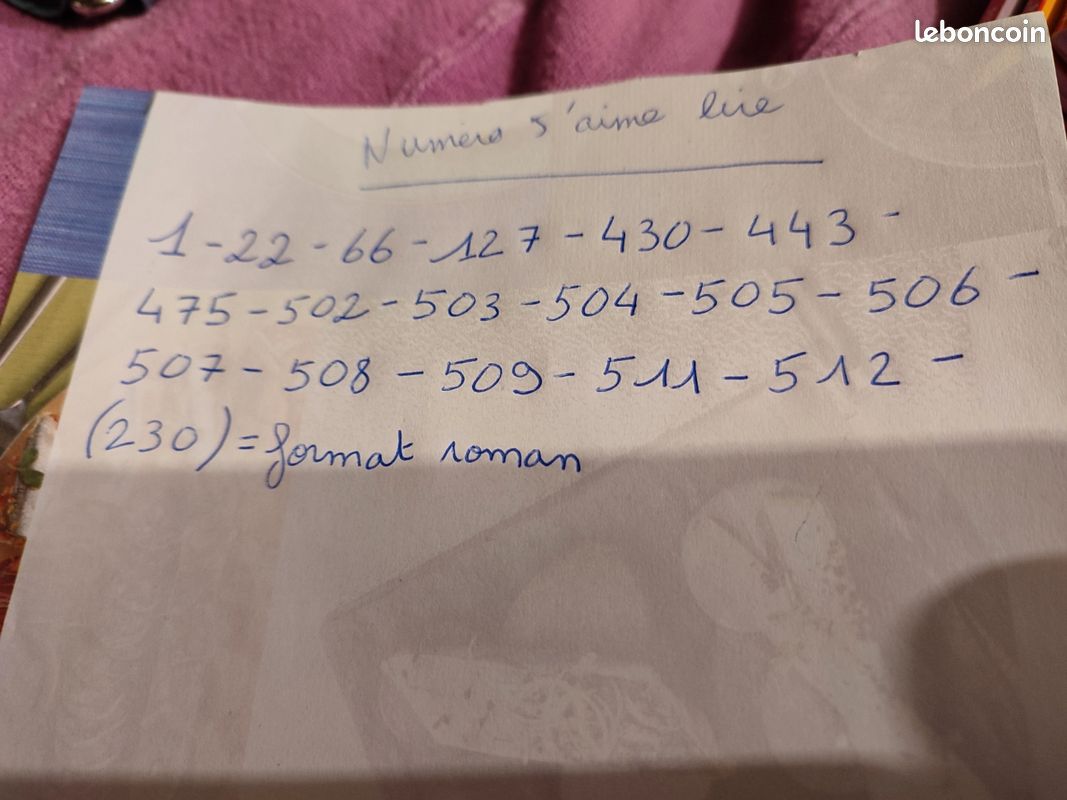 leboncoin
Numéro J'aime lire
1 - 22 - 66 - 127 - 430 - 443 -
475 - 502 - 503 - 504 - 505 - 506 -
507 - 508 - 509 - 511 - 512 -
(230) = format roman